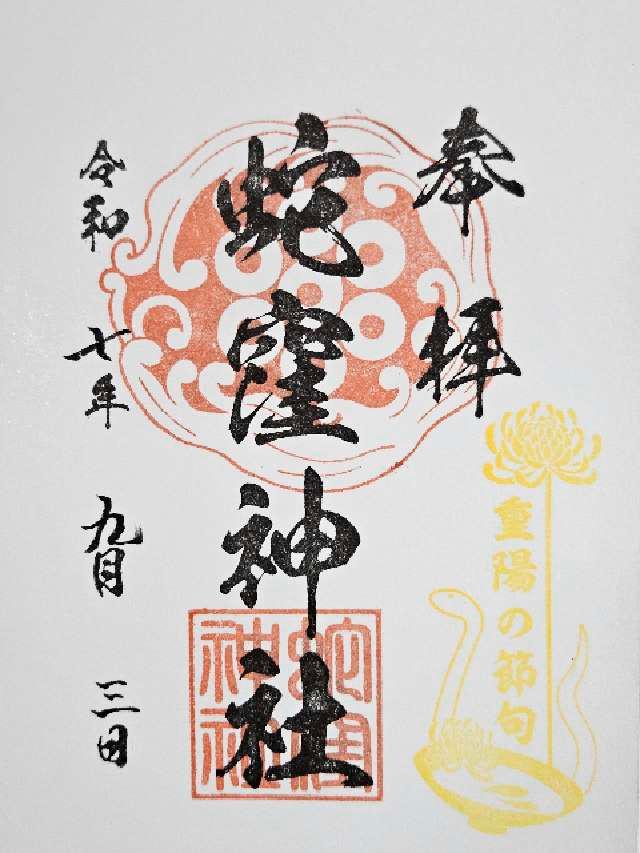 奉拝
蛇窪神社
令和七年九月三日
重陽の節句
蛇窪神社